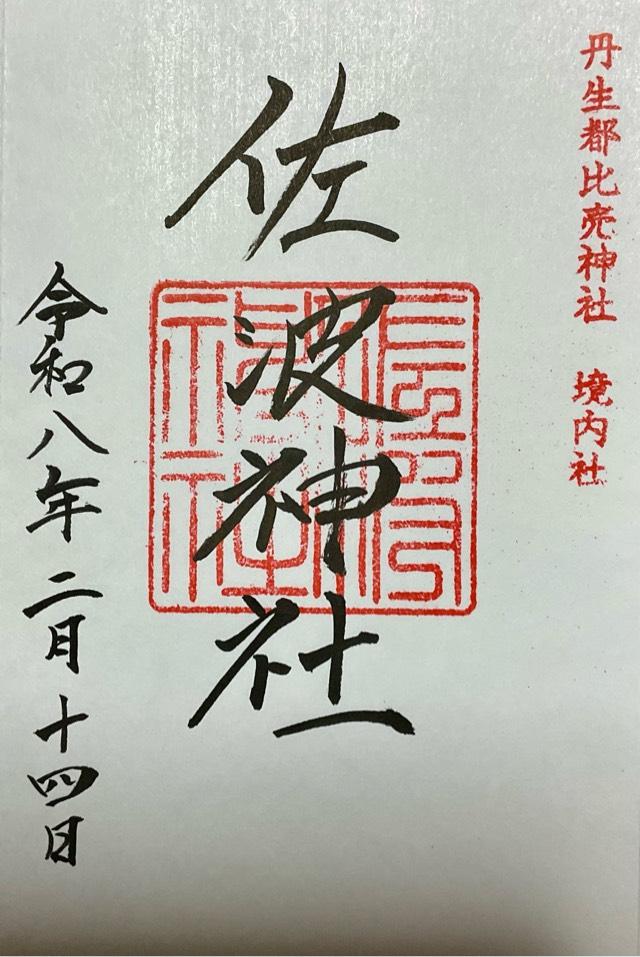 丹生都比売神社 境内社
佐波神社
令和八年二月十四日